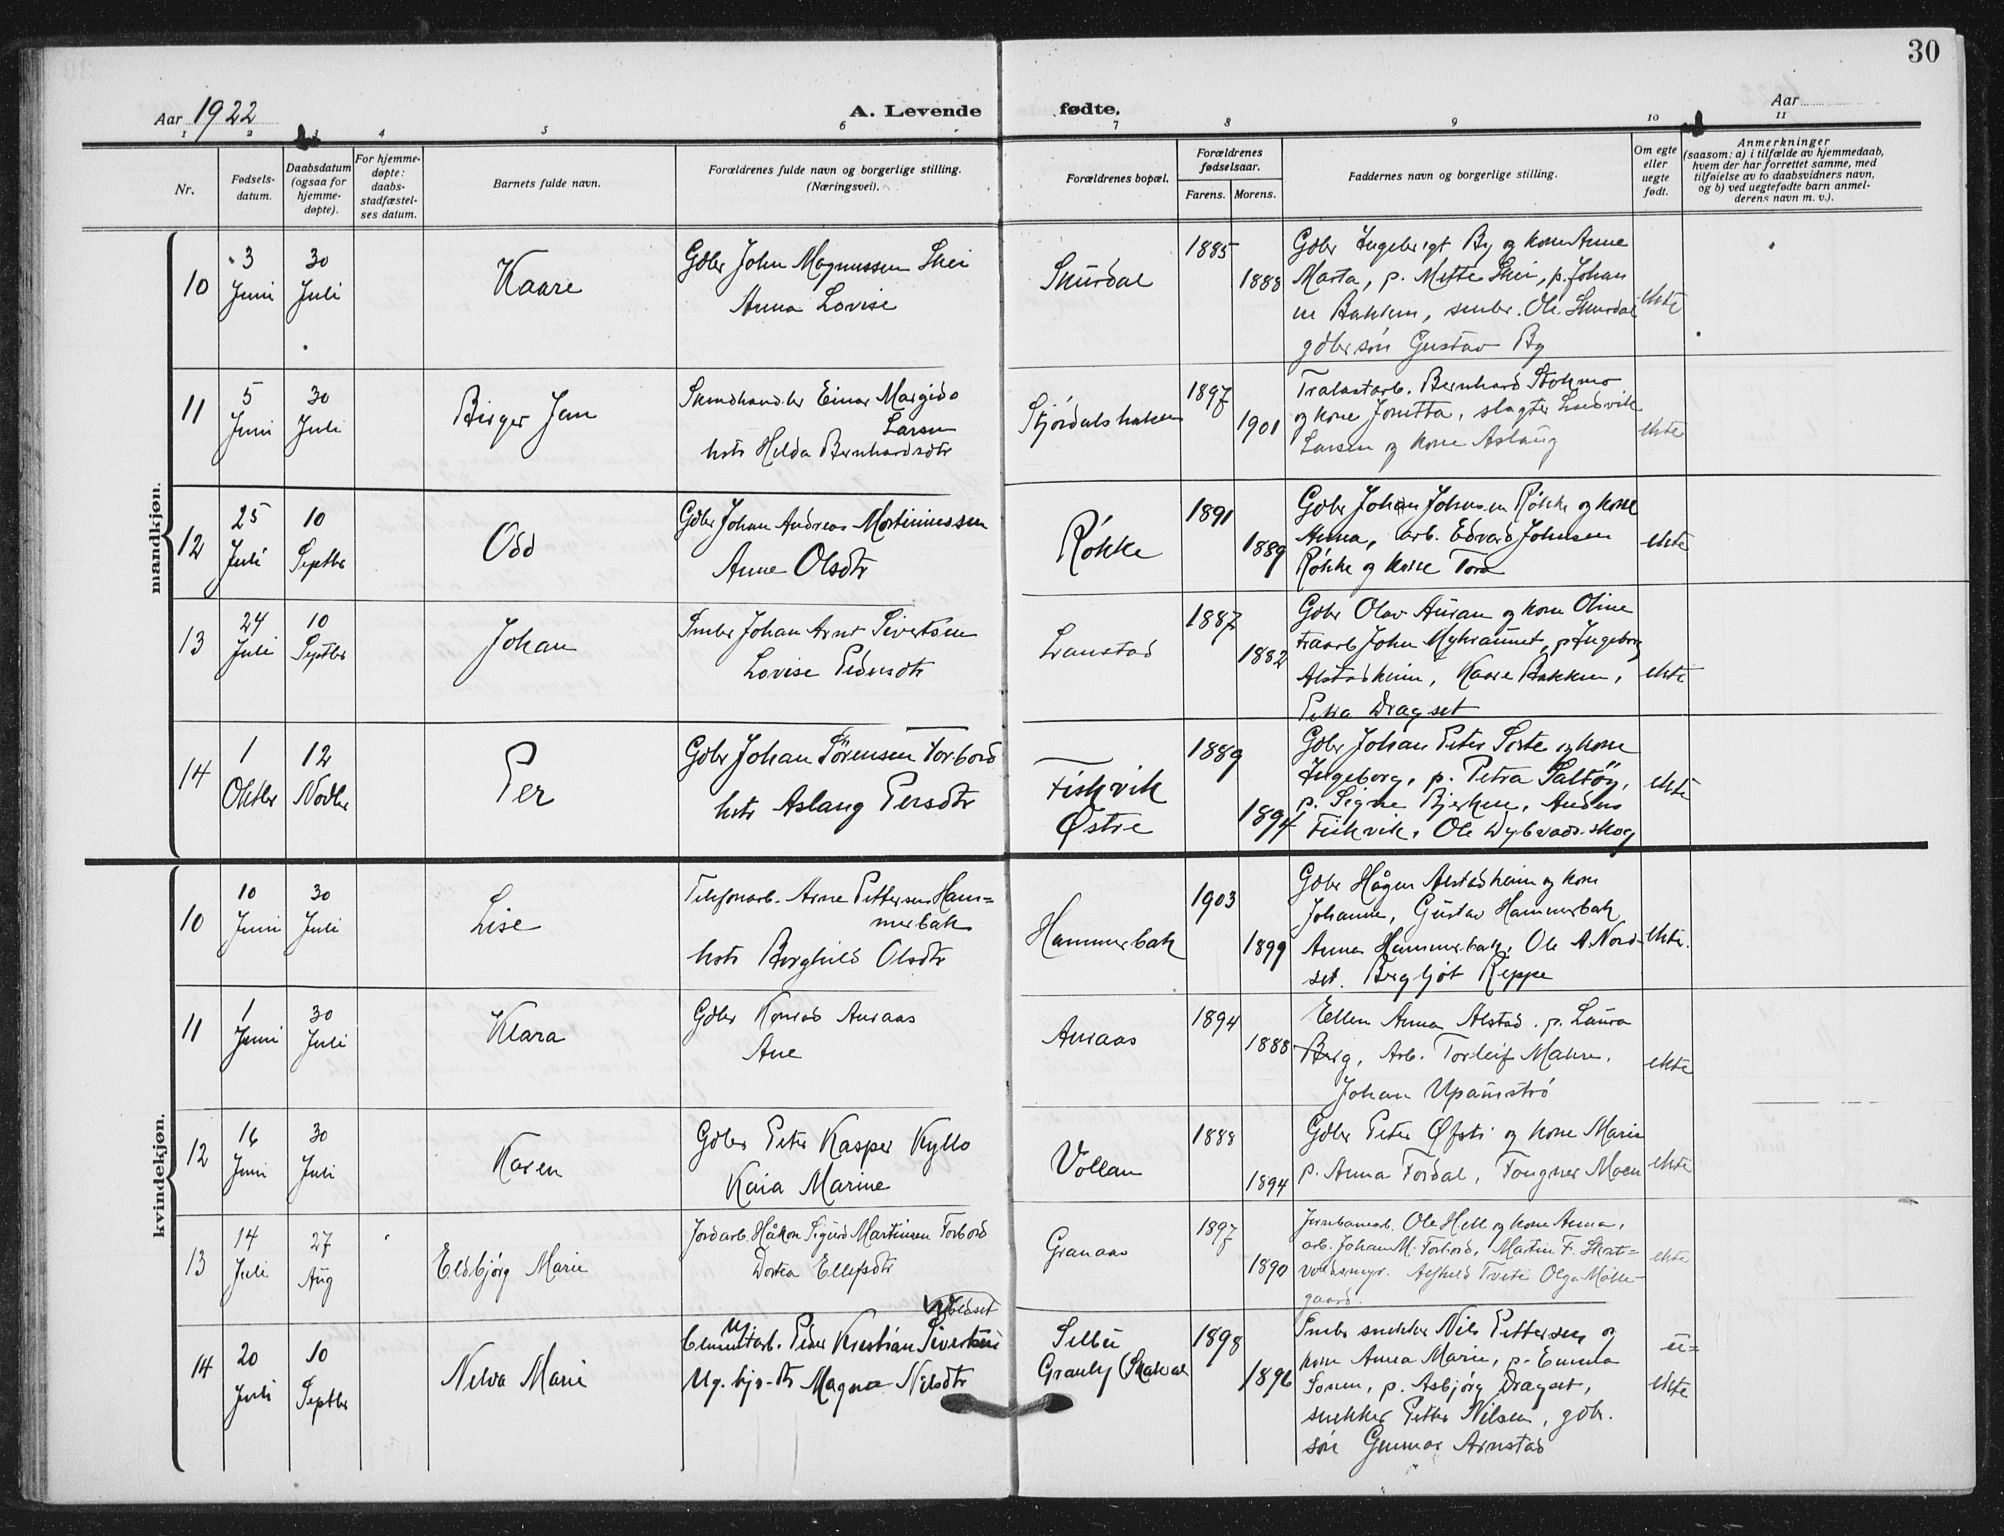 30
Aar 1922
A. Levende fødte.
Aar
1 2 3 4 5 6 7 8 9 10 11
Nr.
Fødsels-
datum.
Daabsdatum
(ogsaa for
hjemme-
døpte).
For hjemme-
døpte:
daabs-
stadfæstel-
ses datum.
Barnets fulde navn.
Forældrenes fulde navn og borgerlige stilling.
(Næringsvei).
Forældrenes bopæl.
Forældrenes
fødselsaar.
Farens. Morens.
Faddernes navn og borgerlige stilling.
Om egte
eller
uegte
født.
Anmerkninger
(saasom: a) i tilfælde av hjemmedaab,
hvem der har forrettet samme, med
tilføielse av to daabsvidners navn,
og b) ved uegtefødte barn anmel-
derens navn m. v.).
mandkjøn.
10
3
Juni
30
Juli
Kaare
Gdbr John Magnussen Skei
Anna Lovise
Skurdal
1885
1888
Gdbr Ingebrigt By og kone Anne
Marta, p. Mette Skei, p. Johan
ne Bakken, smbr. Ole Skurdal
gdbr søn Gustav By
ekte
11
5
Juni
30
Juli
Birger Jan
Skindhandler Einar Margido
Larsen
hstr Helda Bernhardsdtr
Stjørdalshalsen
1897
1901
Tralastarb. Bernhard Stokmo
og kone Jonetta, slagter Ludvik
Larsen og kone Aslaug
ekte
12
25
Juli
10
Septbr
Odd
Gdbr Johan Andreas Mortinussen
Anne Olsdtr
Røkke
1891
1889
Gdbr Johan Johnsen Røkke og kone
Anna, arb. Edvard Johnsen
Røkke og kone Tora
ekte
13
24
Juli
10
Septbr
Johan
Smbr Johan Arnt Sivertsen
Lovise Pedersdtr
Lanstad
1887
1882
Gdbr Olav Auran og kone Oline
John Myhraunet, p Ingeborg
Alstadheim, Kaare Bakken,
Petra Dragset
ekte
14
1
Oktbr
12
Novbr
Per
Gdbr Johan Sørensen Forbord
hstr Aslaug Persdtr
Fiskvik
Østre
1889
1894
Gdbr Johan Peter Sorte og kone
Ingeborg, p. Petra Saltøy,
p. Signe Bjerken, Anders
Fiskvik, Ole Dybvadsskog
ekte
kvindekjøn.
10
10
Juni
30
Juli
Lise
Telefonarb. Arne Pettersen Ham=
merbak
hstr Borghild Olsdtr
Hammerbak
1903
1899
Gdbr Hågen Alstadheim og kone
Johanne, Gustav Hammerbak
Anna Hammerbak, Ole A. Nord-
set. Bergljot Reppe
ekte.
11
1
Juni
30
Juli
Klara
Gdbr Konrad Auraas
Ane
Auraas
1894
1888
Ellen Anna Alstad. p. Laura
Berg, Arb. Torleif Mähre.
Johan
ekte
12
16
Juni
30
Juli
Karen
Gdbr Peter Kasper Kyllo
Kaia Marine
Vollan
1888
1894
Gdbr Peter Øfsti og kone Marie
p. Anna Fordal, Fougner Moen
ekte
13
14
Juli
27
Aug
Eldbjørg Marie
Jordarb. Håkon Sigurd Martinsen Forbord
Dortea Ellefsdtr
Granaas
1897
1890
Jernbanearb. Ole Hell og kone Anna,
arb. Johan M. Forbord, Martin F. Skat=
valdsmyr. Alfhild Tveite Olga Mølle-
gaard.
ekte
14
20
Juli
10
Septbr
Nelva Marie
Uvedset
Cementarb. Peder Kristian Sivertsen
Ug. bjr-dtr Magna Nilsdtr
Selbu
Granly (Skatval
1898
1896
Smbr snekker Nils Pettersen og
kone Anna Marie, p. Emma
p. Asbjørg Dragset,
snekker Petter Nilsen, gdbr.
søn Gunnar Arnstad
u=
ekte